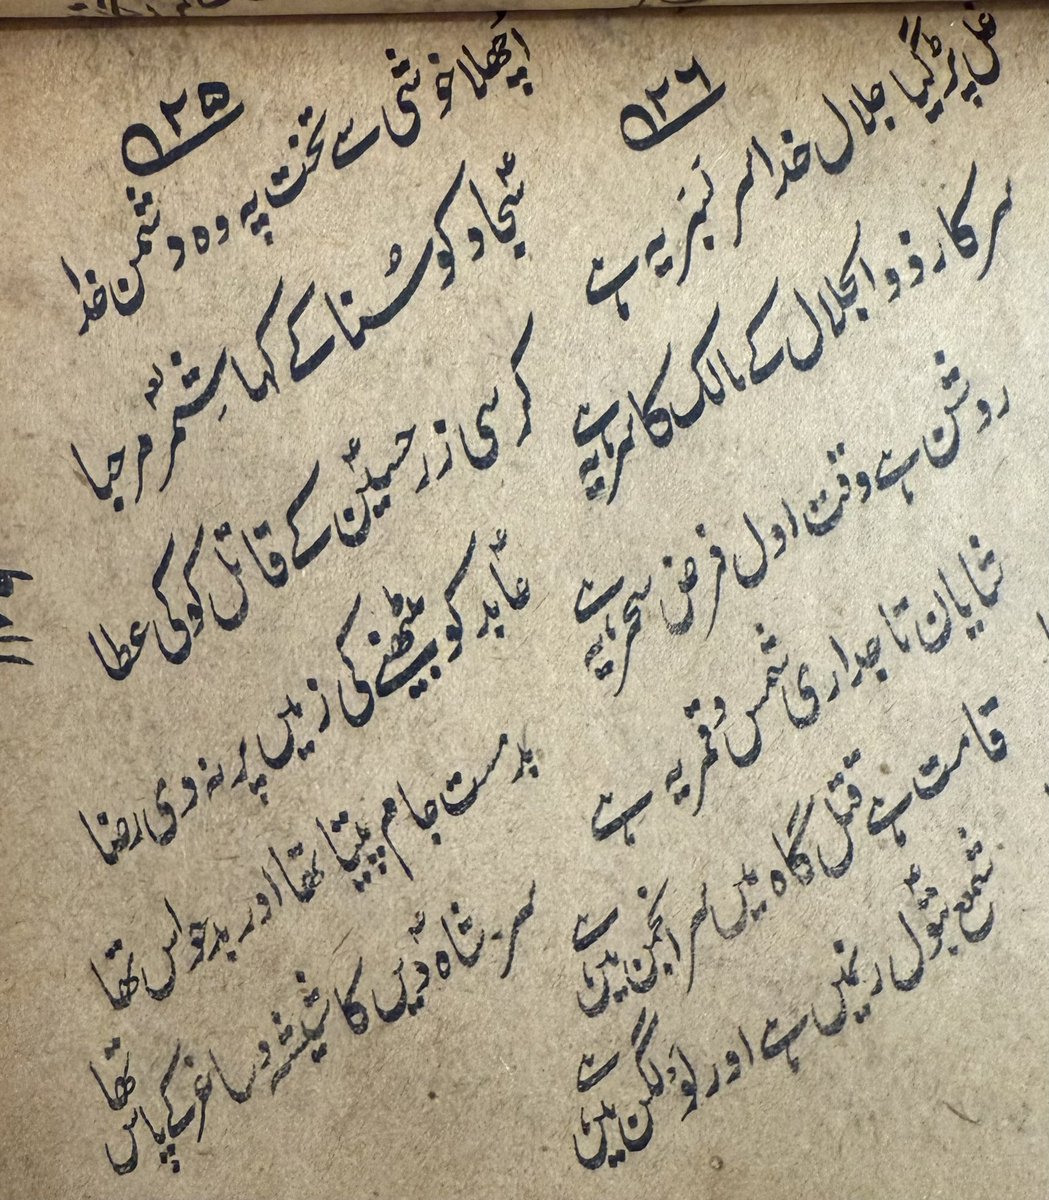 ۲۵
اچھلا خوشی سے تخت پہ وہ دشمن خدا
سجاد کو سُنا کے کہا شِمر مرحبا
کرسی زر حسین کے قاتل کو کی عطا
عابد کو بیٹھنے کی زمیں پر نہ دی رضا
بدمست جام پیتا تھا اور بدحواس تھا
سرِ شاہ دیں کا شیشہ و ساغر کے پاس تھا
۲۶
غل پڑ گیا جلال خدا سر بسر یہ ہے
سرکار ذوالجلال کے مالک کا سر یہ ہے
روشن ہے وقت اول فرض سحر یہ ہے
شایان تاجداری شمس و قمر یہ ہے
قامت ہے قتل گاہ میں سر انجمن میں ہے
شمع بتول رنمیں ہے اور لو لگن میں ہے